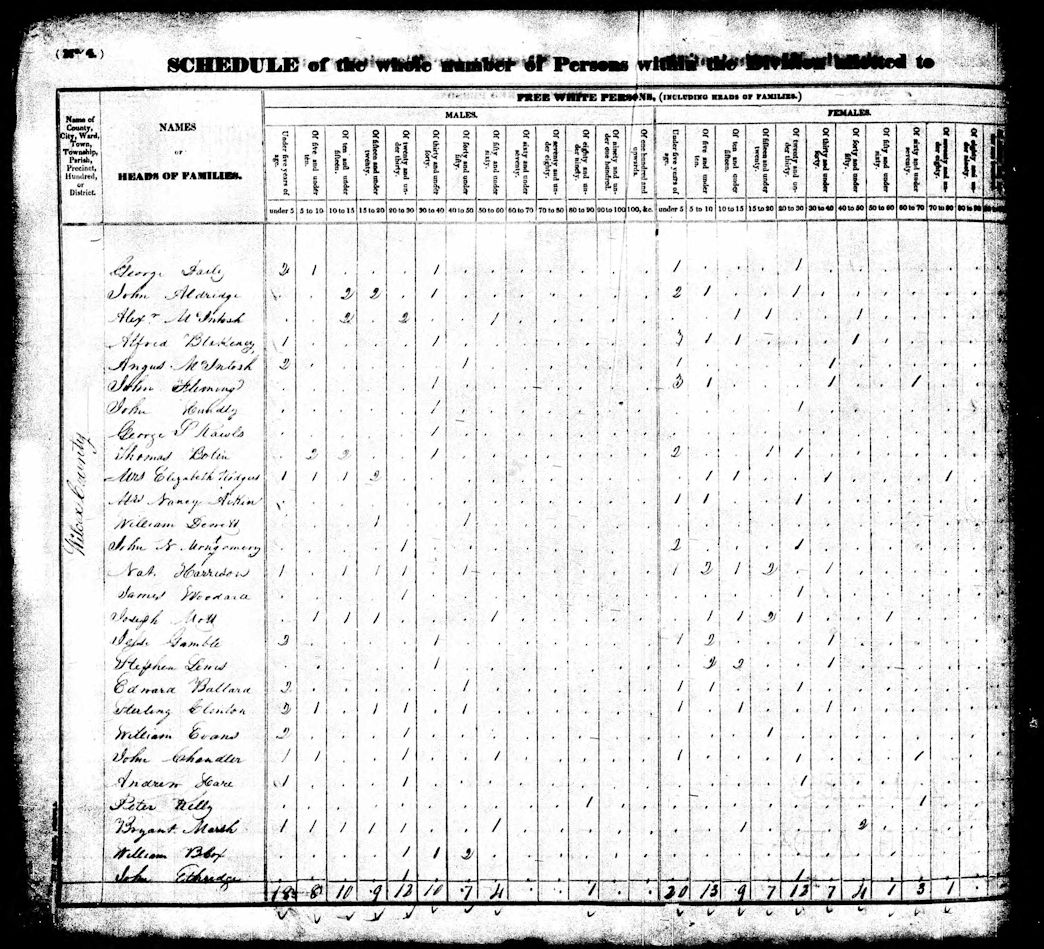 ( No. 4. )
SCHEDULE of the whole number of Persons within the Division allotted to
FREE WHITE PERSONS, (INCLUDING HEADS OF FAMILIES.)
Name of County, City, Ward, Town, Township, Parish, Precinct, Hundred, or District.
NAMES
OR
HEADS OF FAMILIES.
MALES.
FEMALES.
Under five years of age. Of five and under ten. Of ten and under fifteen. Of fifteen and under twenty. Of twenty and under thirty. Of thirty and under forty. Of forty and under fifty. Of fifty and under sixty. Of sixty and under seventy. Of seventy and under eighty. Of eighty and under ninety. Of ninety and under one hundred. Of one hundred and upwards. Under five years of age. Of five and under ten. Of ten and under fifteen. Of fifteen and under twenty. Of twenty and under thirty. Of thirty and under forty. Of forty and under fifty. Of fifty and under sixty. Of sixty and under seventy. Of seventy and under eighty. Of eighty and under ninety.
under 5 5 to 10 10 to 15 15 to 20 20 to 30 30 to 40 40 to 50 50 to 60 60 to 70 70 to 80 80 to 90 90 to 100 100, &c. under 5 5 to 10 10 to 15 15 to 20 20 to 30 30 to 40 40 to 50 50 to 60 60 to 70 70 to 80 80 to 90
Wilcox County
George Daily 2 1 1 1 1
John Aldridge 2 2 1 2 1 1
Alexr McIntosh 2 2 1 1 1 1
Alfred Blakeney 1 1 3 1 1 1
Angus McIntosh 2 1 1 1
John Fleming 1 3 1 1 1
John 1 1
George 1
Thomas Bolin 2 2 1 2 1 1
Mrs Elizabeth Hodges 1 1 1 2 1 1 1 1
Mrs Nancy Aikin 1 1 1
William 1 1
John N Montgomery 1 2 1
Nat. Harrison 1 1 1 1 1 1 2 1 2 1
James Woodard 1 1
Joseph Mott 1 1 1 1 1 1 2 1 1
Jesse Gamble 2 1 1 2 1
Stephen Lewis 1 2 2 1
Edward Ballard 2 1 1 1 1
Sterling Clinton 2 1 1 1 1 1 1 1
William Evans 2 1 1
John Chandler 1 1 1 1 1 1 1
Andrew Hare 1 1 1
Peter Kelly 1 1
Bryant Marsh 1 1 1 1 1 1 1 2
William B 1 1 2
John Ethridge 1 1
18 8 10 9 12 10 7 4 1 20 13 9 7 12 7 4 1 3 1